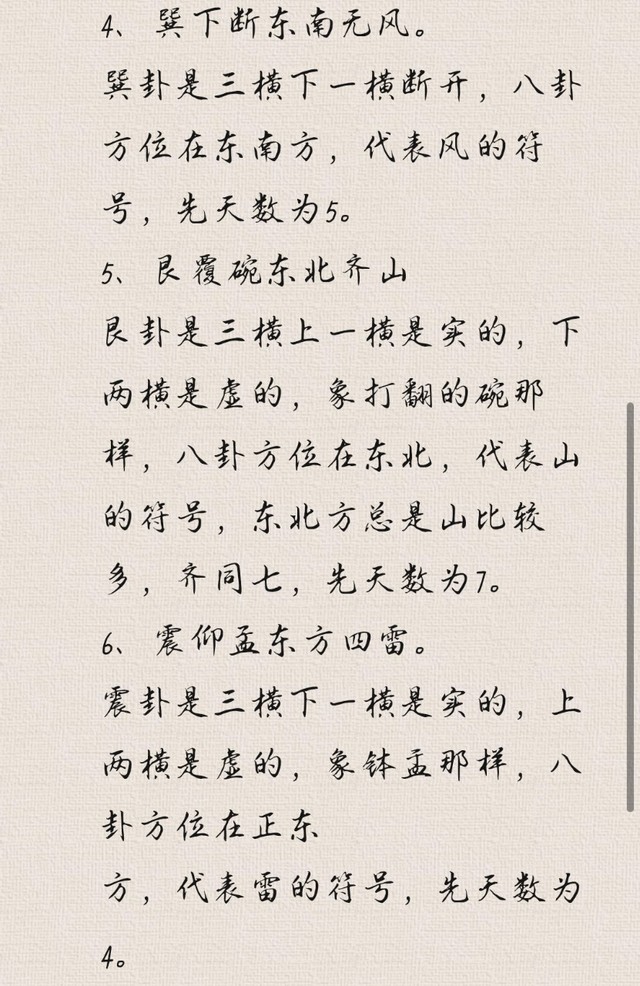 4、巽下断东南无风。
巽卦是三横下一横断开，八卦
方位在东南方，代表风的符
号，先天数为5。
5、艮覆碗东北齐山
艮卦是三横上一横是实的，下
两横是虚的，象打翻的碗那
样，八卦方位在东北，代表山
的符号，东北方总是山比较
多，齐同七，先天数为7。
6、震仰孟东方四雷。
震卦是三横下一横是实的，上
两横是虚的，象钵盂那样，八
卦方位在正东
方，代表雷的符号，先天数为
4。